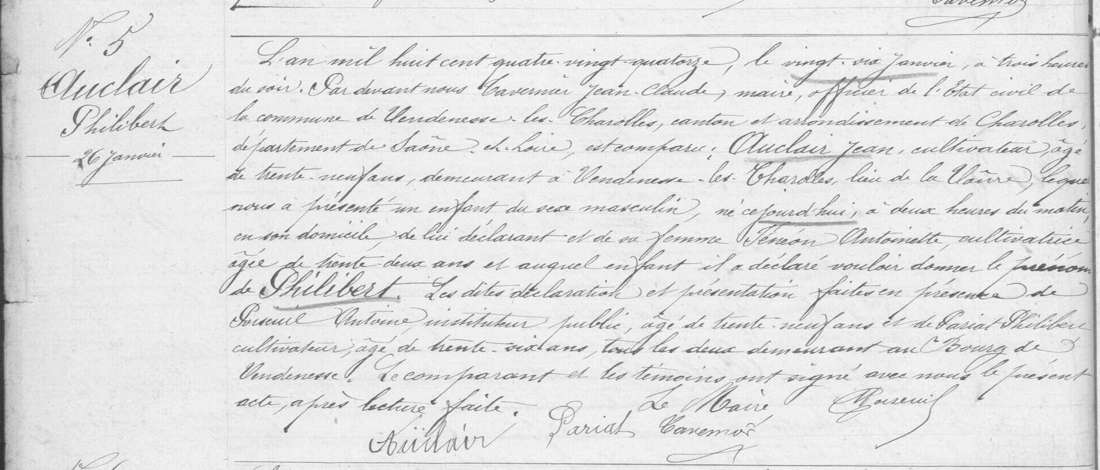 N.° 5
Auclair
Philibert
26 Janvier
L'an mil huit cent quatre-vingt-quatorze, le vingt-six Janvier, à trois heures
du soir. Par devant nous Tavernier Jean-Claude, maire, officier de l'Etat civil de
la commune de Vendenesse-les-Charolles, canton et arrondissement de Charolles,
département de Saône-et-Loire, est comparu: Auclair Jean, cultivateur, âgé
de trente-neuf ans, demeurant à Vendenesse-les-Charolles, lieu de la Vaûre, lequel
nous a présenté un enfant du sexe masculin, né cejourd'hui, à deux heures du matin,
en son domicile, de lui déclarant et de sa femme Antoinette, cultivatrice
âgée de trente deux ans et auquel enfant il a déclaré vouloir donner le prénom
de Philibert. Les dites déclaration et présentation faites en présence de
Antoine, instituteur public, âgé de trente-neuf ans et de Pariat Philibert
cultivateur, âgé de trente-six ans, tous les deux demeurant au Bourg de
Vendenesse. Le comparant et les témoins ont signé avec nous le présent
acte, après lecture faite.
Le Maire
Auclair Pariat Tavernier